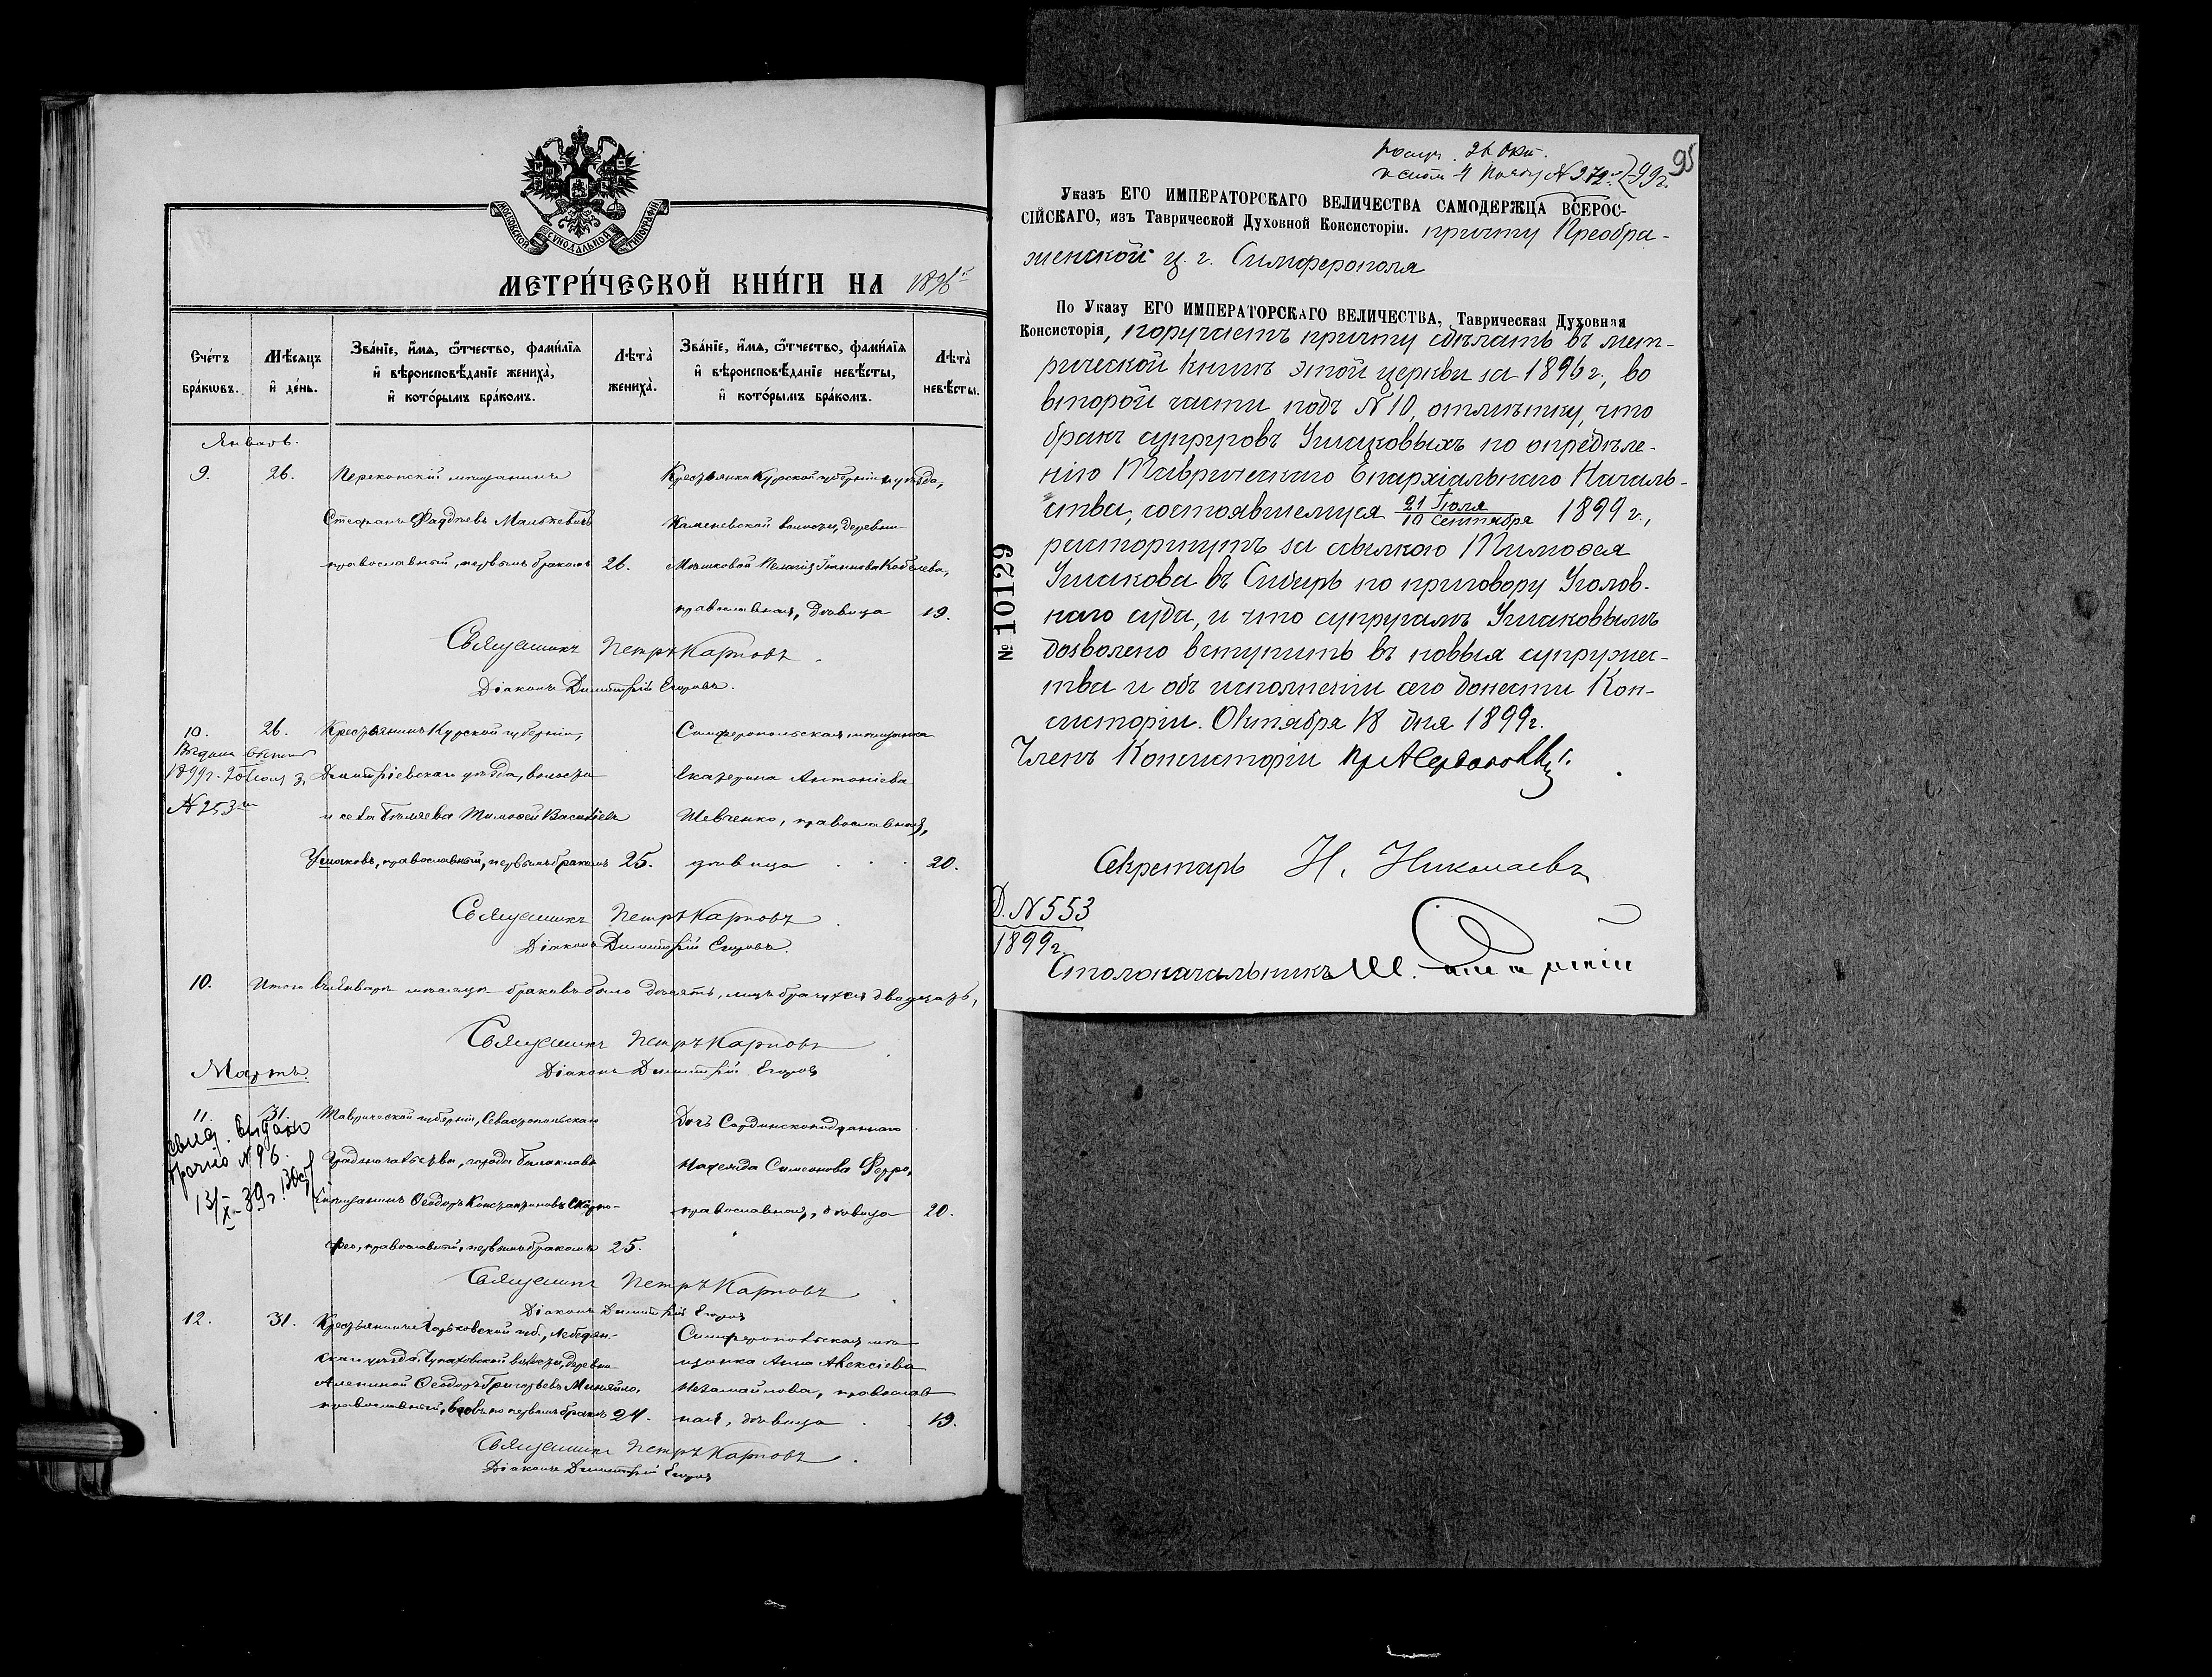 МОСКОВСКОЙ СУНОДАЛЬНОЙ ТИПОГРАФІИ
МЕТРИ́ЧЕСКОЙ КНИ́ГИ НА 1896й
Сче́тъ бра́кѡвъ.
Мѣ́сяцъ и҆ де́нь.
Зва́нїе, и҆́мѧ, ѻ҆́тчество, фами́лїѧ и҆ вѣроисповѣ́данїе жениха̀, и҆ кото́рымъ бра́комъ.
Лѣта̀ жениха̀.
Зва́нїе, и҆́мѧ, ѻ҆́тчество, фами́лїѧ и҆ вѣроисповѣ́данїе невѣ́сты, и҆ кото́рымъ бра́комъ.
Лѣта̀ невѣ́сты.
Январь.
9. 26. Перекопскій мещанинъ
Стефанъ Фаддѣевъ Малькевичъ
православный, первымъ бракомъ 26.
Крестьянка Курской губерніи и уѣзда,
Каменевской волости, деревни
Мошковой Пелагія Іоаннова Кобелева,
православная, дѣвица 19.
Священникъ Петръ Карповъ.
Діаконъ Димитрій Егоровъ.
10. 26. Крестьянинъ Курской губерніи,
Дмитріевскаго уѣзда, волости
и села Бѣляева Тимофей Василіевъ
Ушаковъ, православный, первымъ бракомъ 25.
1899г.
№253
Симферопольская мещанка
Екатерина Антоніева
Шевченко, православная,
дѣвица 20.
Священникъ Петръ Карповъ.
Діаконъ Димитрій Егоровъ.
10. Итого въ Январѣ мѣсяцѣ браковъ было десять, лицъ брачихся двадцать,
Священникъ Петръ Карповъ
Діаконъ Димитрій Егоровъ
Мартъ.
11. 31. Таврической губерніи, Севастопольскаго
Градоначальства, города Балаклавы
мѣщанинъ Ѳеодоръ Константиновъ
православный, первымъ бракомъ 25.
выдано
№96
39г.
Дочь Сардинскоподданнаго
Надежда Симеонова Ферро,
православная, дѣвица 20.
Священникъ Петръ Карповъ.
Діаконъ Димитрій Егоровъ
12. 31. Крестьянинъ Харьковской губ., Лебедин-
скаго уѣзда, волости, деревни
Ѳеодоръ Григорьевъ
православный, первымъ бракомъ 24.
Симферопольская мѣ-
щанка Анна Алексіева
православ-
ная, дѣвица 19.
Священникъ Петръ Карповъ.
Діаконъ Димитрій Егоровъ
95
26 Окт.
№ 372 99г.
Указъ ЕГО ИМПЕРАТОРСКАГО ВЕЛИЧЕСТВА САМОДЕРЖЦА ВСЕРОС-
СІЙСКАГО, изъ Таврической Духовной Консисторіи. причту Преобра-
женской ц. г. Симферополя
По Указу ЕГО ИМПЕРАТОРСКАГО ВЕЛИЧЕСТВА, Таврическая Духовная
Консисторія, поручаетъ причту сдѣлать въ мет-
рической книгѣ этой церкви за 1896г., во
второй части подъ №10, отмѣтку, что
бракъ супруговъ Ушаковыхъ по опредѣле-
нію Таврическаго Епархіальнаго Началь-
ства, состоявшемуся 21 Іюля/10 Сентября 1899 г.,
расторгнутъ за ссылкою Тимоѳея
Ушакова въ Сибирь по приговору Уголов-
наго суда, и что супругамъ Ушаковымъ
дозволено вступить въ новыя супружес-
тва и объ исполненіи сего донести Кон-
систоріи. Октября 18 дня 1899г.
Членъ Консисторіи
Секретарь Н. Николаевъ
Д. №553
1899г.
Столоначальникъ
№ 10129